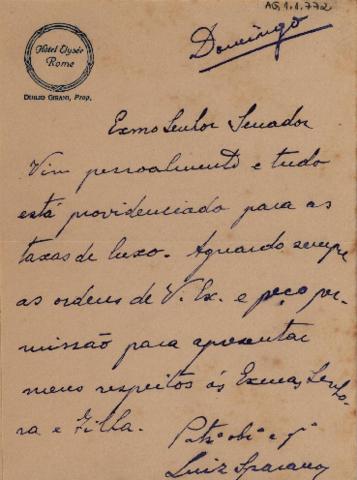 AG.1.1.772
Hotel Elysée
Rome
Duilio Girani, Prop.
Domingo
Exmo Senhor Senador
Vim pessoalmente e tudo
está providenciado para as
taxas de luxo. Aguardo sempre
as ordens de V. Ex. e peço per-
missão para apresentar
meus respeitos ás Exmas Senho-
ra e Filha.
Luiz Sparano